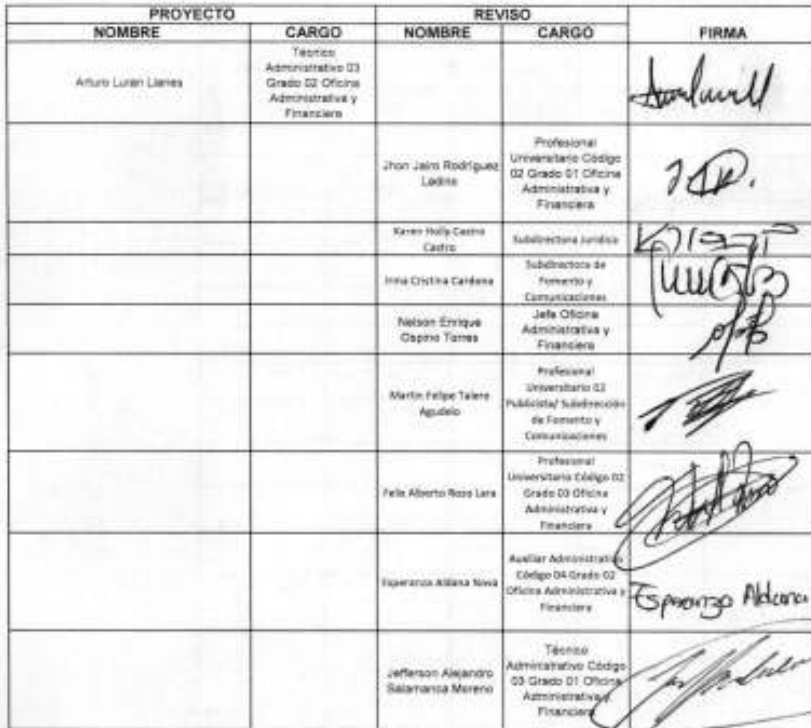 PROYECTO REVISO
NOMBRE CARGO NOMBRE CARGO FIRMA
Arturo Luran Llanes
Técnico
Administrativo 03
Grado 02 Oficina
Administrativa y
Financiera
Jhon Jairo Rodríguez
Ladino
Profesional
Universitario Código
02 Grado 01 Oficina
Administrativa y
Financiera
Karen Holly Castro
Castro
Subdirectora Jurídica
Irma Cristina Cardona
Subdirectora de
Fomento y
Comunicaciones
Nelson Enrique
Ospino Torres
Jefe Oficina
Administrativa y
Financiera
Martin Felipe Talero
Agudelo
Profesional
Universitario 02
Publicista/ Subdirección
de Fomento y
Comunicaciones
Felix Alberto Rozo Lara
Profesional
Universitario Código 02
Grado 03 Oficina
Administrativa y
Financiera
Esperanza Aldana Nova
Auxiliar Administrativo
Código 04 Grado 02
Oficina Administrativa y
Financiera
Esperanza Aldana
Jefferson Alejandro
Salamanca Moreno
Técnico
Administrativo Código
03 Grado 01 Oficina
Administrativa y
Financiera